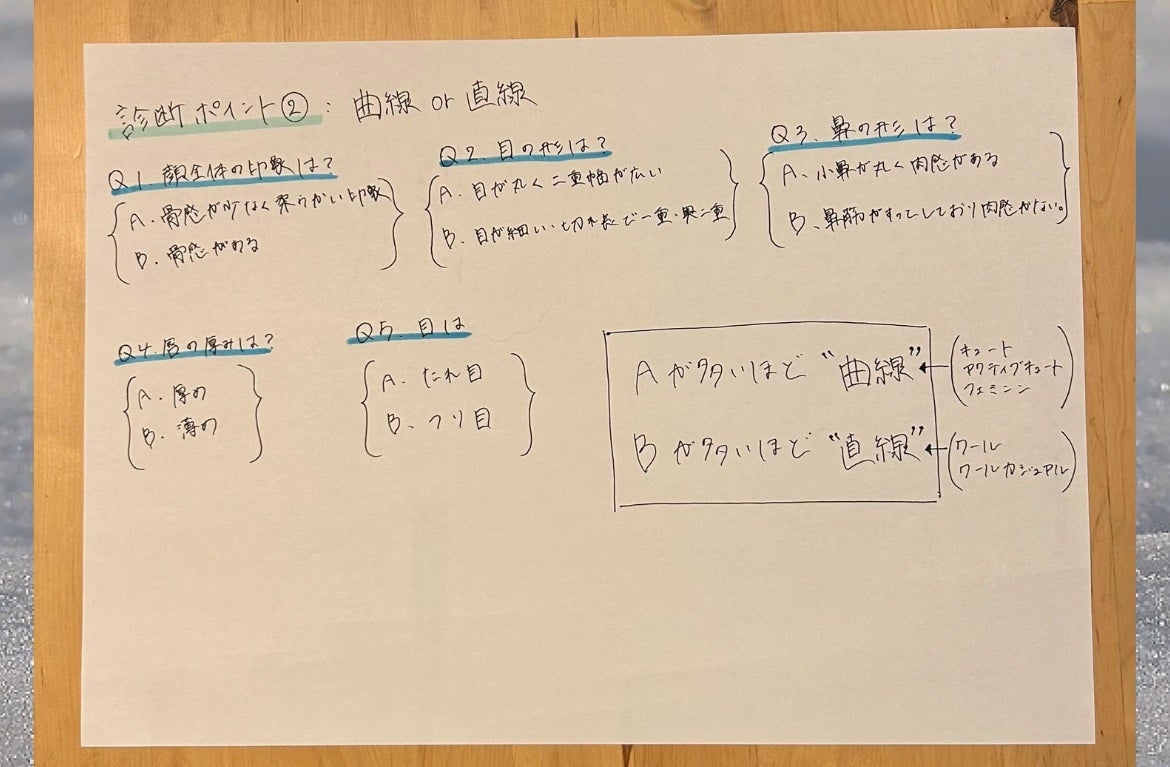 診断ポイント②：曲線 or 直線
Q1. 顔全体の印象は？
A. 骨感が少なく柔らかい印象
B. 骨感がある
Q2. 目の形は？
A. 目が丸く二重幅が広い
B. 目が細い・切れ長で一重・奥二重
Q3. 鼻の形は？
A. 小鼻が丸く肉感がある
B. 鼻筋がすっとしており肉感がない。
Q4. 唇の厚みは？
A. 厚め
B. 薄め
Q5. 目は
A. たれ目
B. つり目
Aが多いほど"曲線"
キュート
アクティブキュート
フェミニン
Bが多いほど"直線"
クール
クールカジュアル